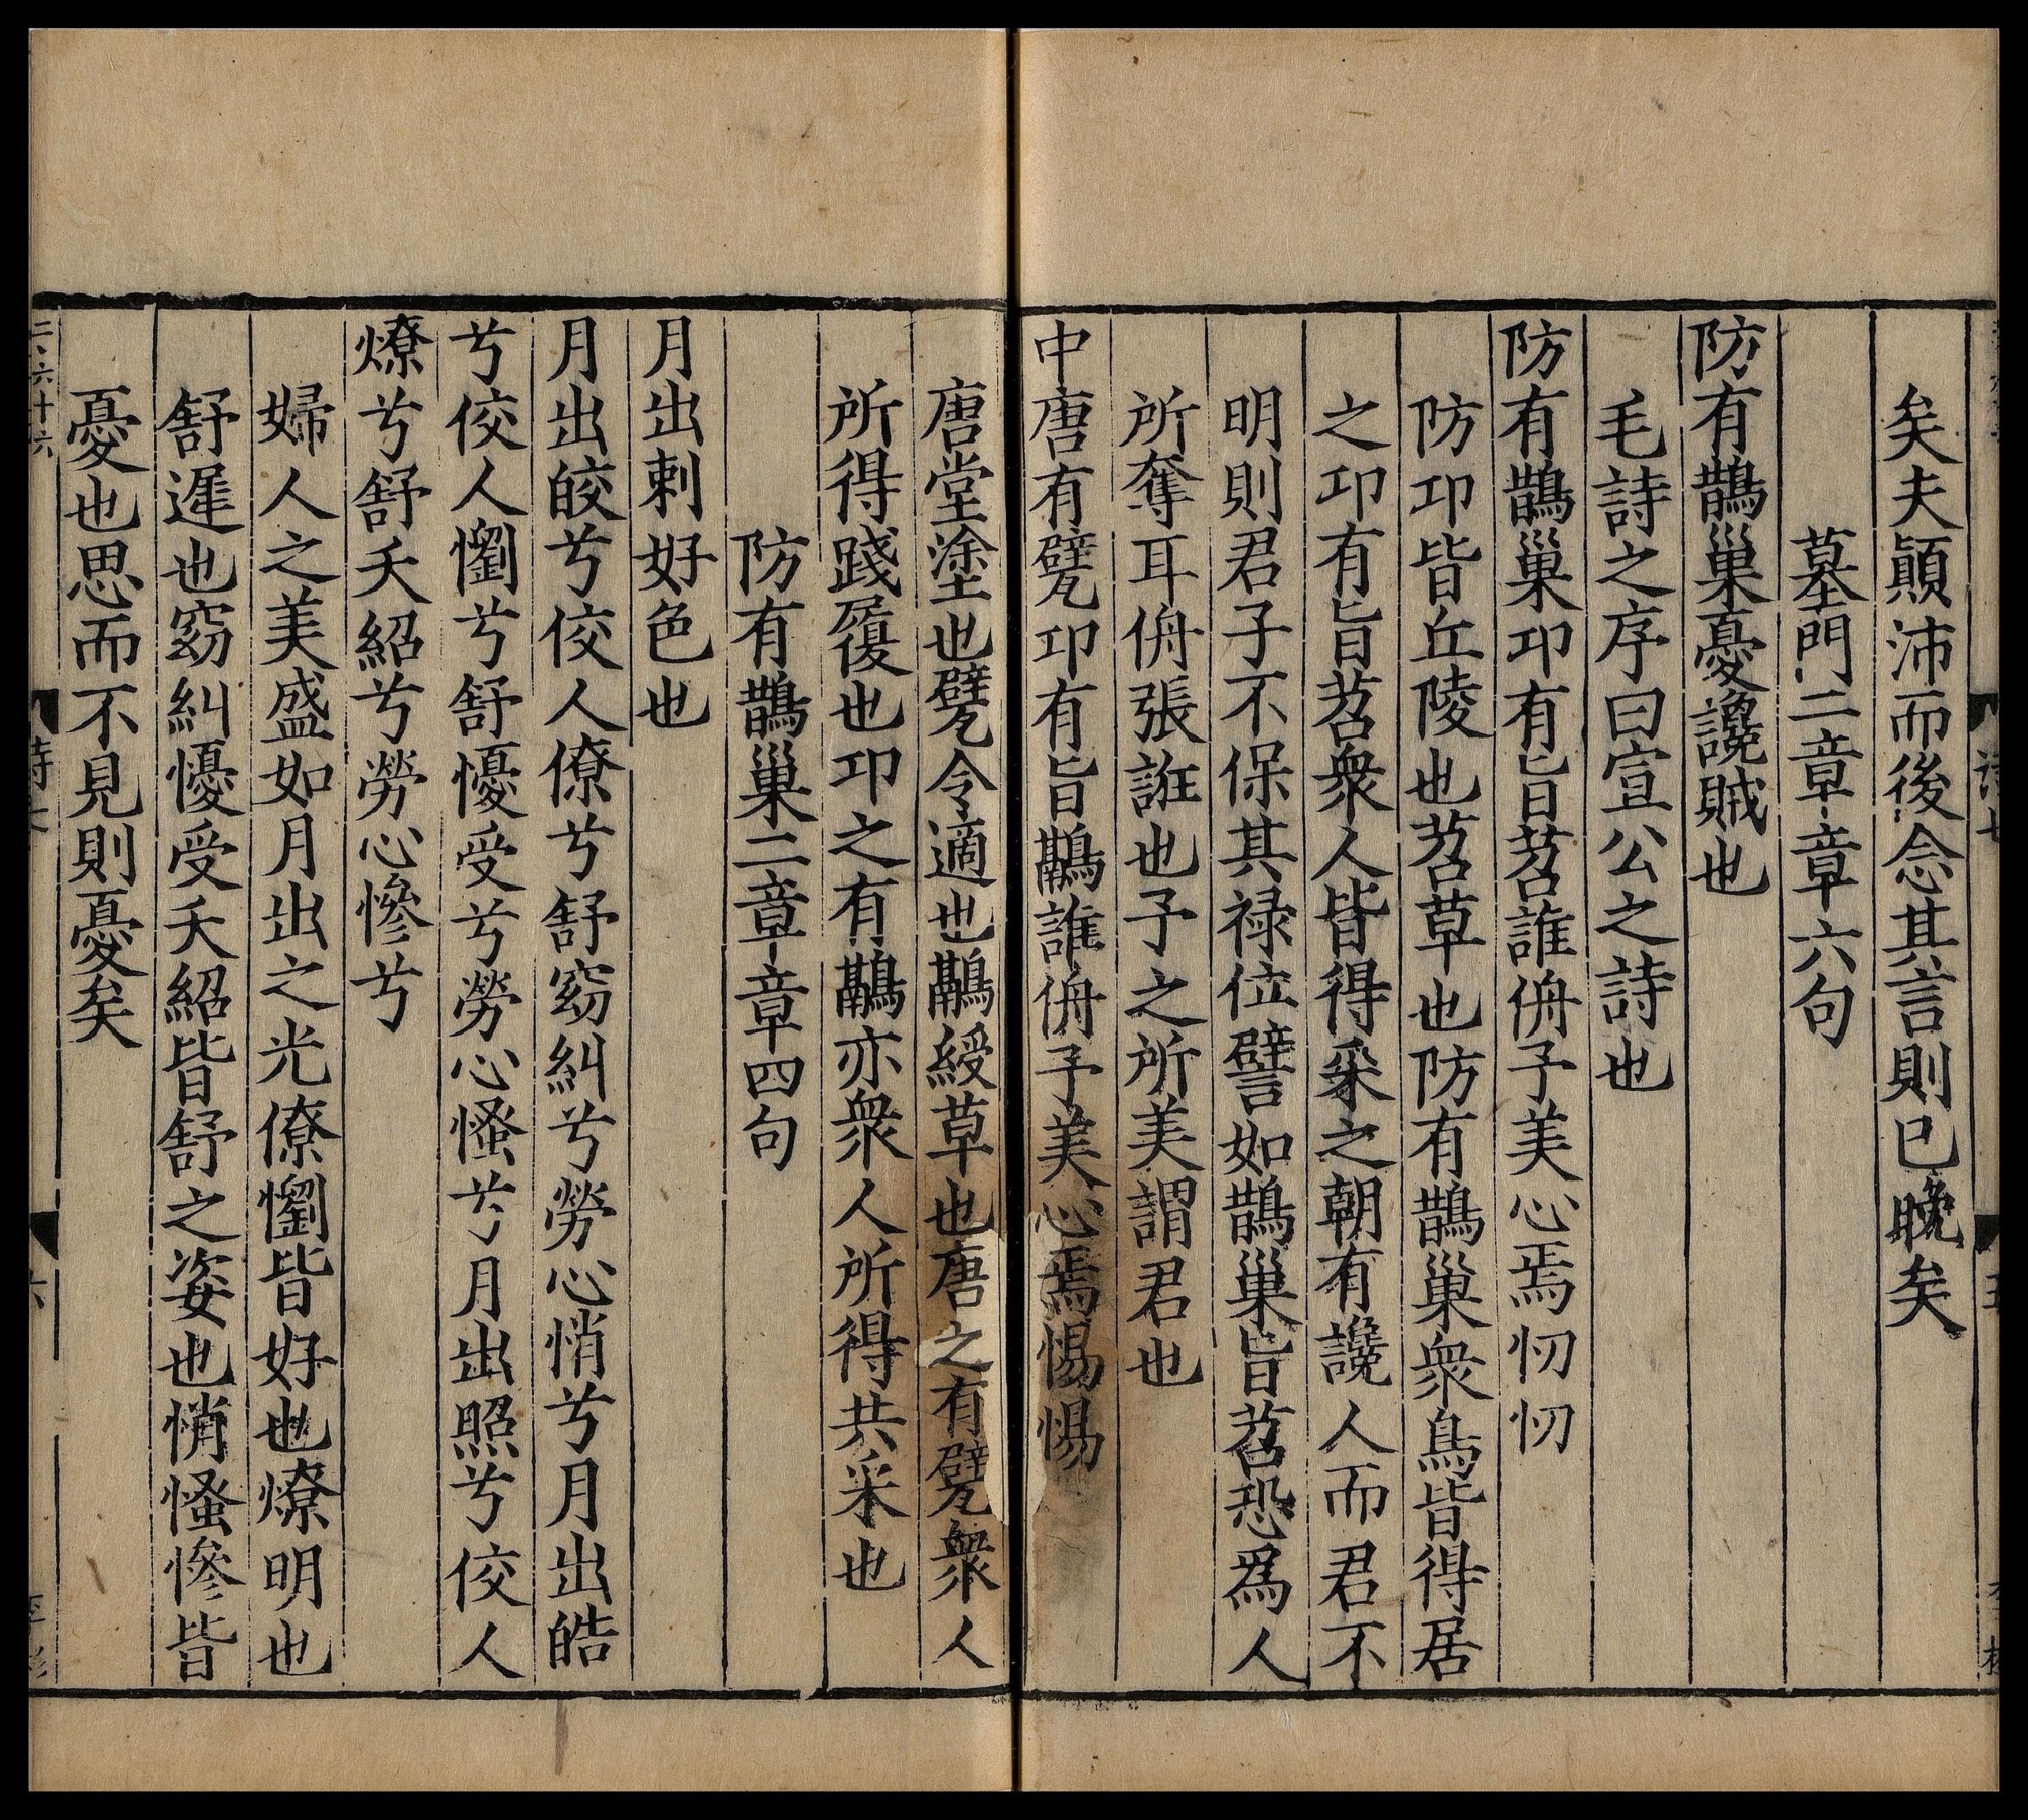 矣夫顛沛而後念其言則已晚矣
墓門二章章六句
防有鵲巢憂讒賊也
毛詩之序曰宣公之詩也
防有鵲巢卭有旨苕誰侜予美心焉忉忉
防卭皆丘陵也苕草也防有鵲巢衆鳥皆得居
之卭有旨苕衆人皆得采之朝有讒人而君不
明則君子不保其禄位譬如鵲巢旨苕恐爲人
所奪耳侜張誑也予之所美謂君也
中唐有甓卭有旨鷊誰侜予美心焉惕惕
唐堂塗也甓令適也鷊綬草也唐之有甓衆人
所得踐履也卭之有鷊亦衆人所得共采也
防有鵲巢二章章四句
月出刺好色也
月出皎兮佼人僚兮舒窈糾兮勞心悄兮月出皓
兮佼人懰兮舒懮受兮勞心慅兮月出照兮佼人
燎兮舒夭紹兮勞心慘兮
婦人之美盛如月出之光僚懰皆好也燎明也
舒遲也窈糾懮受夭紹皆舒之姿也悄慅慘皆
憂也思而不見則憂矣
二六十六